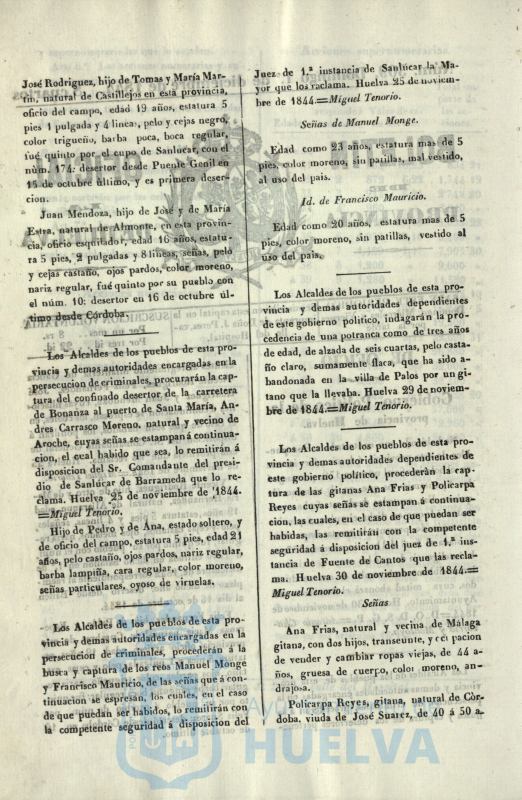 José Rodriguez, hijo de Tomas y María Mar-
tin, natural de Castillejos en esta provincia,
oficio del campo, edad 19 años, estatura 5
pies 1 pulgada y 4 lineas, pelo y cejas negro,
color trigueño, barba poca, boca regular,
fué quinto por el cupo de Sanlúcar, con el
núm. 174: desertor desde Puente Genil en
15 de octubre último, y es primera deser-
cion.
Juan Mendoza, hijo de José y de María
Estra, natural de Almonte, en esta provin-
cia, oficio esquilador, edad 16 años, estatu-
ra 5 pies, 2 pulgadas y 8 lineas, señas, pelo
y cejas castaño, ojos pardos, color moreno,
nariz regular, fué quinto por su pueblo con
el núm. 10: desertor en 16 de octubre úl-
timo desde Córdoba.
Los Alcaldes de los pueblos de esta pro-
vincia y demas autoridades encargadas en la
persecucion de criminales, procurarán la cap-
tura del confinado desertor de la carretera
de Bonanza al puerto de Santa María, An-
dres Carrasco Moreno, natural y vecino de
Aroche, cuyas señas se estampan á continua-
cion, el cual habido que sea, lo remitirán á
disposicion del Sr. Comandante del presi-
dio de Sanlúcar de Barrameda que lo re-
clama. Huelva 25 de noviembre de 1844.
=Miguel Tenorio.
Hijo de Pedro y de Ana, estado soltero, y
de oficio del campo, estatura 5 pies, edad 21
años, pelo castaño, ojos pardos, nariz regular,
barba lampiña, cara regular, color moreno,
señas particulares, oyoso de viruelas.
Los Alcaldes de los pueblos de esta pro-
vincia y demas autoridades encargadas en la
persecucion de criminales, procederán á la
busca y captura de los reos Manuel Monge
y Francisco Mauricio, de las señas que á con-
tinuacion se espresan, los cuales, en el caso
de que puedan ser habidos, lo remitirán con
la competente seguridad á disposicion del
Juez de 1.ª instancia de Sanlúcar la Ma-
yor que los raclama. Huelva 25 de noviem-
bre de 1844.=Miguel Tenorio.
Señas de Manuel Monge.
Edad como 23 años, estatura mas de 5
pies, color moreno, sin patillas, mal vestido,
al uso del pais.
Id. de Francisco Mauricio.
Edad como 20 años, estatura mas de 5
pies, color moreno, sin patillas, vestido al
uso del pais.
Los Alcaldes de los pueblos de esta pro-
vincia y demas autoridades dependientes
de este gobierno político, indagarán la pro-
cedencia de una potranca como de tres años
de edad, alzada de seis cuartas, pelo casta-
ño claro, sumamente flaca, que ha sido a-
bandonada en la villa de Palos por un gi-
tano que la llevaba. Huelva 29 de noviem-
bre de 1844.=Miguel Tenorio.
Los Alcaldes de los pueblos de esta pro-
vincia y demas autoridades dependientes de
este gobierno político, procederán la cap-
tura de las gitanas Ana Frias y Policarpa
Reyes cuyas señas se estampan á continua-
cion, las cuales, en el caso de que puedan ser
habidas, las remitirán con la competente
seguridad á disposicion del juez de 1.ª ins-
tancia de Fuente de Cantos que las recla-
ma. Huelva 30 de noviembre de 1844.=
Miguel Tenorio.
Señas
Ana Frias, natural y vecina de Málaga
gitana, con dos hijos, transeunte, y ocupacion
de vender y cambiar ropas viejas, de 44 a-
ños, gruesa de cuerpo, color moreno, an-
drajosa.
Policarpa Reyes, gitana, natural de Cór-
doba, viuda de José Suarez, de 40 á 50 a-
HUELVA